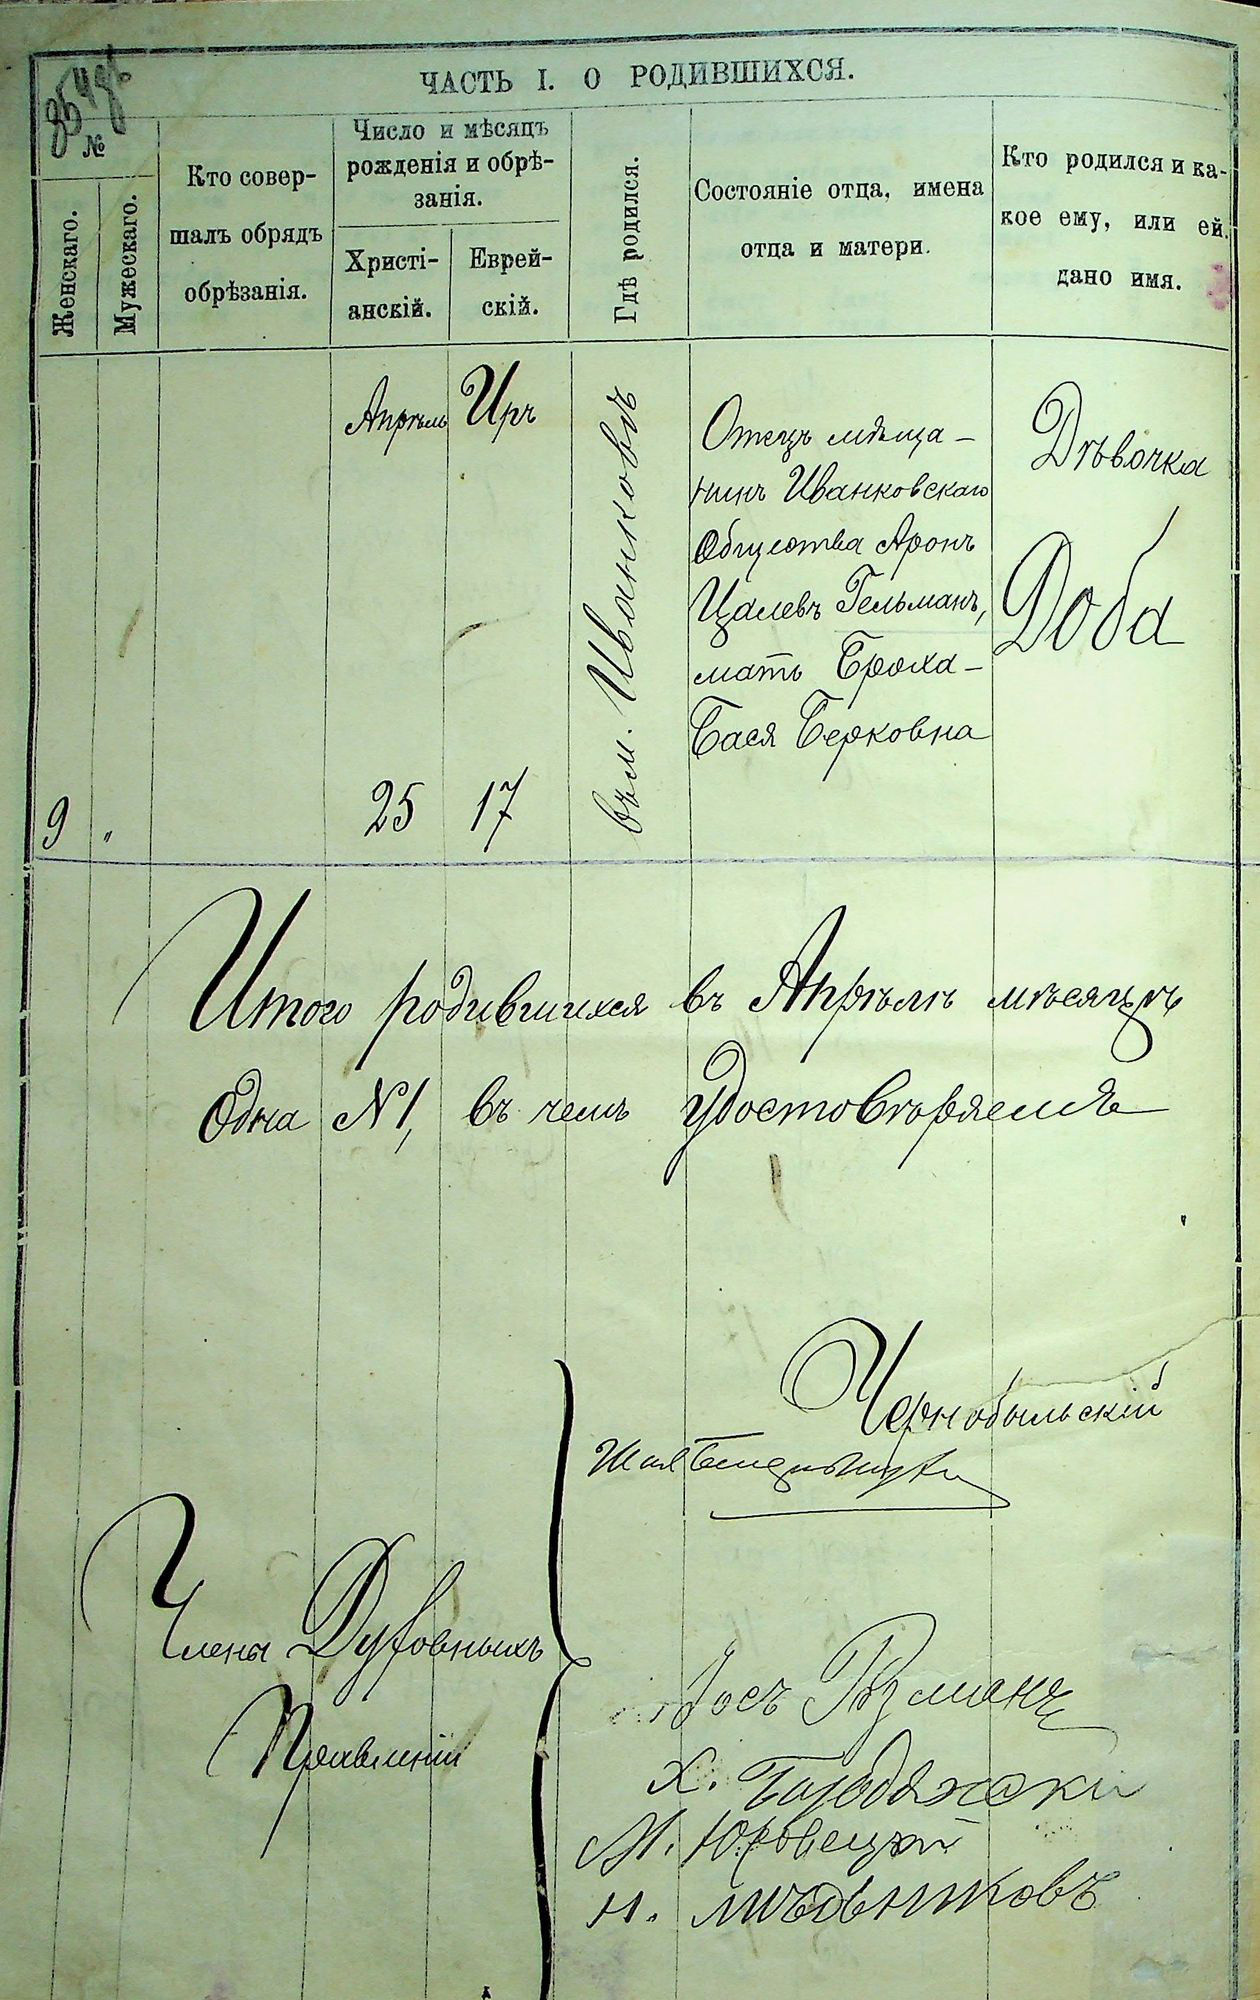 ЧАСТЬ I. О РОДИВШИХСЯ.
№
Женскаго.
Мужескаго.
Кто совер-
шалъ обрядъ
обрѣзанія.
Число и мѣсяцъ
рожденія и обрѣ-
занія.
Христі-
анскій.
Еврей-
скій.
Гдѣ родился.
Состояніе отца, имена
отца и матери.
Кто родился и ка-
кое ему, или ей,
дано имя.
9
"
Апрѣль
25
Иръ
17
Въ м. Иванковѣ
Отецъ мѣща-
нинъ Иванковскаго
Общества Аронъ
Цалевъ Гельманъ,
мать Броха-
Бася Берковна
Дѣвочка
Доба
Итого родившихся въ Апрѣлѣ мѣсяцѣ
Одна N1, въ чемъ удостовѣряемъ
Чернобыльскій
Шая
Члены Духовныхъ
Правленій
Іось
Х.
М. Юровецкій
Н. Мѣдниковъ